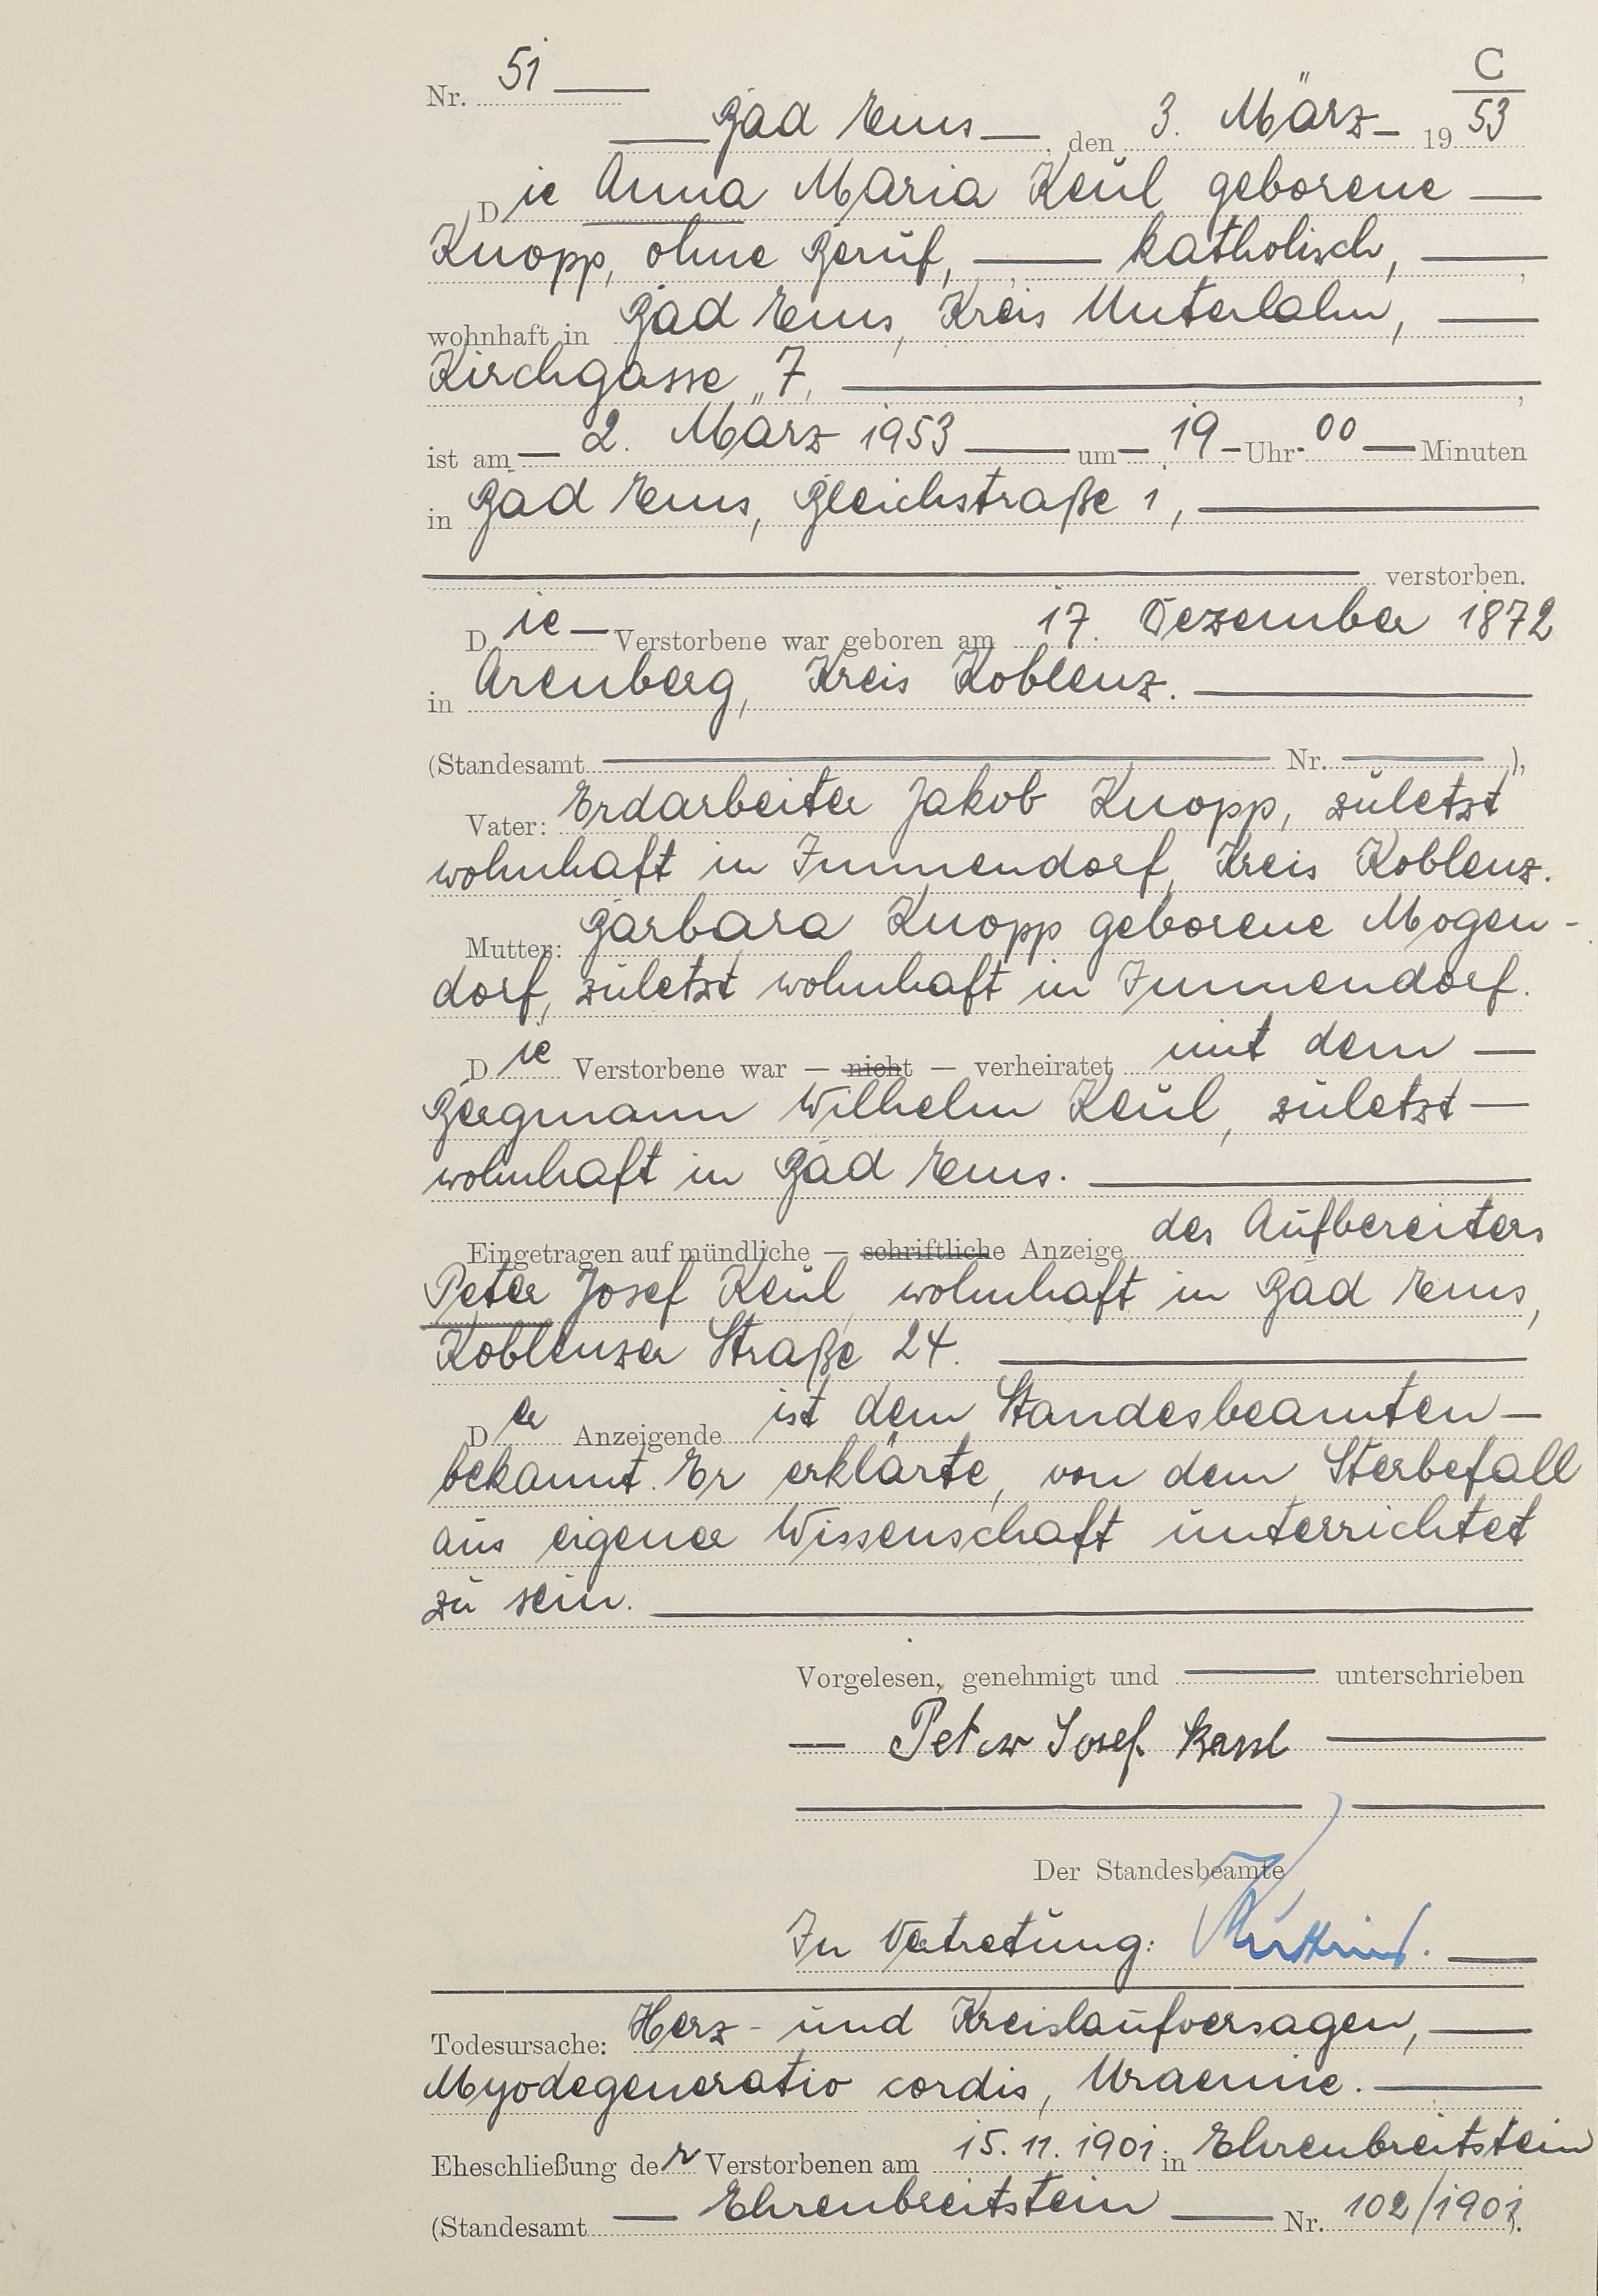 C
Nr. 51
Bad Ems, den 3. März 1953
Die Anna Maria Keul geborene
Knopp, ohne Beruf, katholisch,
wohnhaft in Bad Ems, Kreis Unterlahn,
Kirchgasse 7,
ist am 2. März 1953 um 19 Uhr 00 Minuten
in Bad Ems, Bleichstraße 1,
verstorben.
Die Verstorbene war geboren am 17. Dezember 1872
in Arenberg, Kreis Koblenz.
(Standesamt Nr. ),
Vater: Erdarbeiter Jakob Knopp, zuletzt
wohnhaft in Immendorf, Kreis Koblenz.
Mutter: Barbara Knopp geborene Mogen-
dorf, zuletzt wohnhaft in Immendorf.
Die Verstorbene war — nicht — verheiratet mit dem
Bergmann Wilhelm Keul, zuletzt
wohnhaft in Bad Ems.
Eingetragen auf mündliche — schriftliche Anzeige des Aufbereiters
Peter Josef Keul, wohnhaft in Bad Ems,
Koblenzer Straße 24.
Der Anzeigende ist dem Standesbeamten
bekannt. Er erklärte, von dem Sterbefall
aus eigener Wissenschaft unterrichtet
zu sein.
Vorgelesen, genehmigt und unterschrieben
Peter Josef Keul
Der Standesbeamte
In Vertretung:
Todesursache: Herz- und Kreislaufversagen,
Myodegeneratio cordis, Uraemie.
Eheschließung der Verstorbenen am 15. 11. 1901 in Ehrenbreitstein
(Standesamt Ehrenbreitstein Nr. 102/1901).